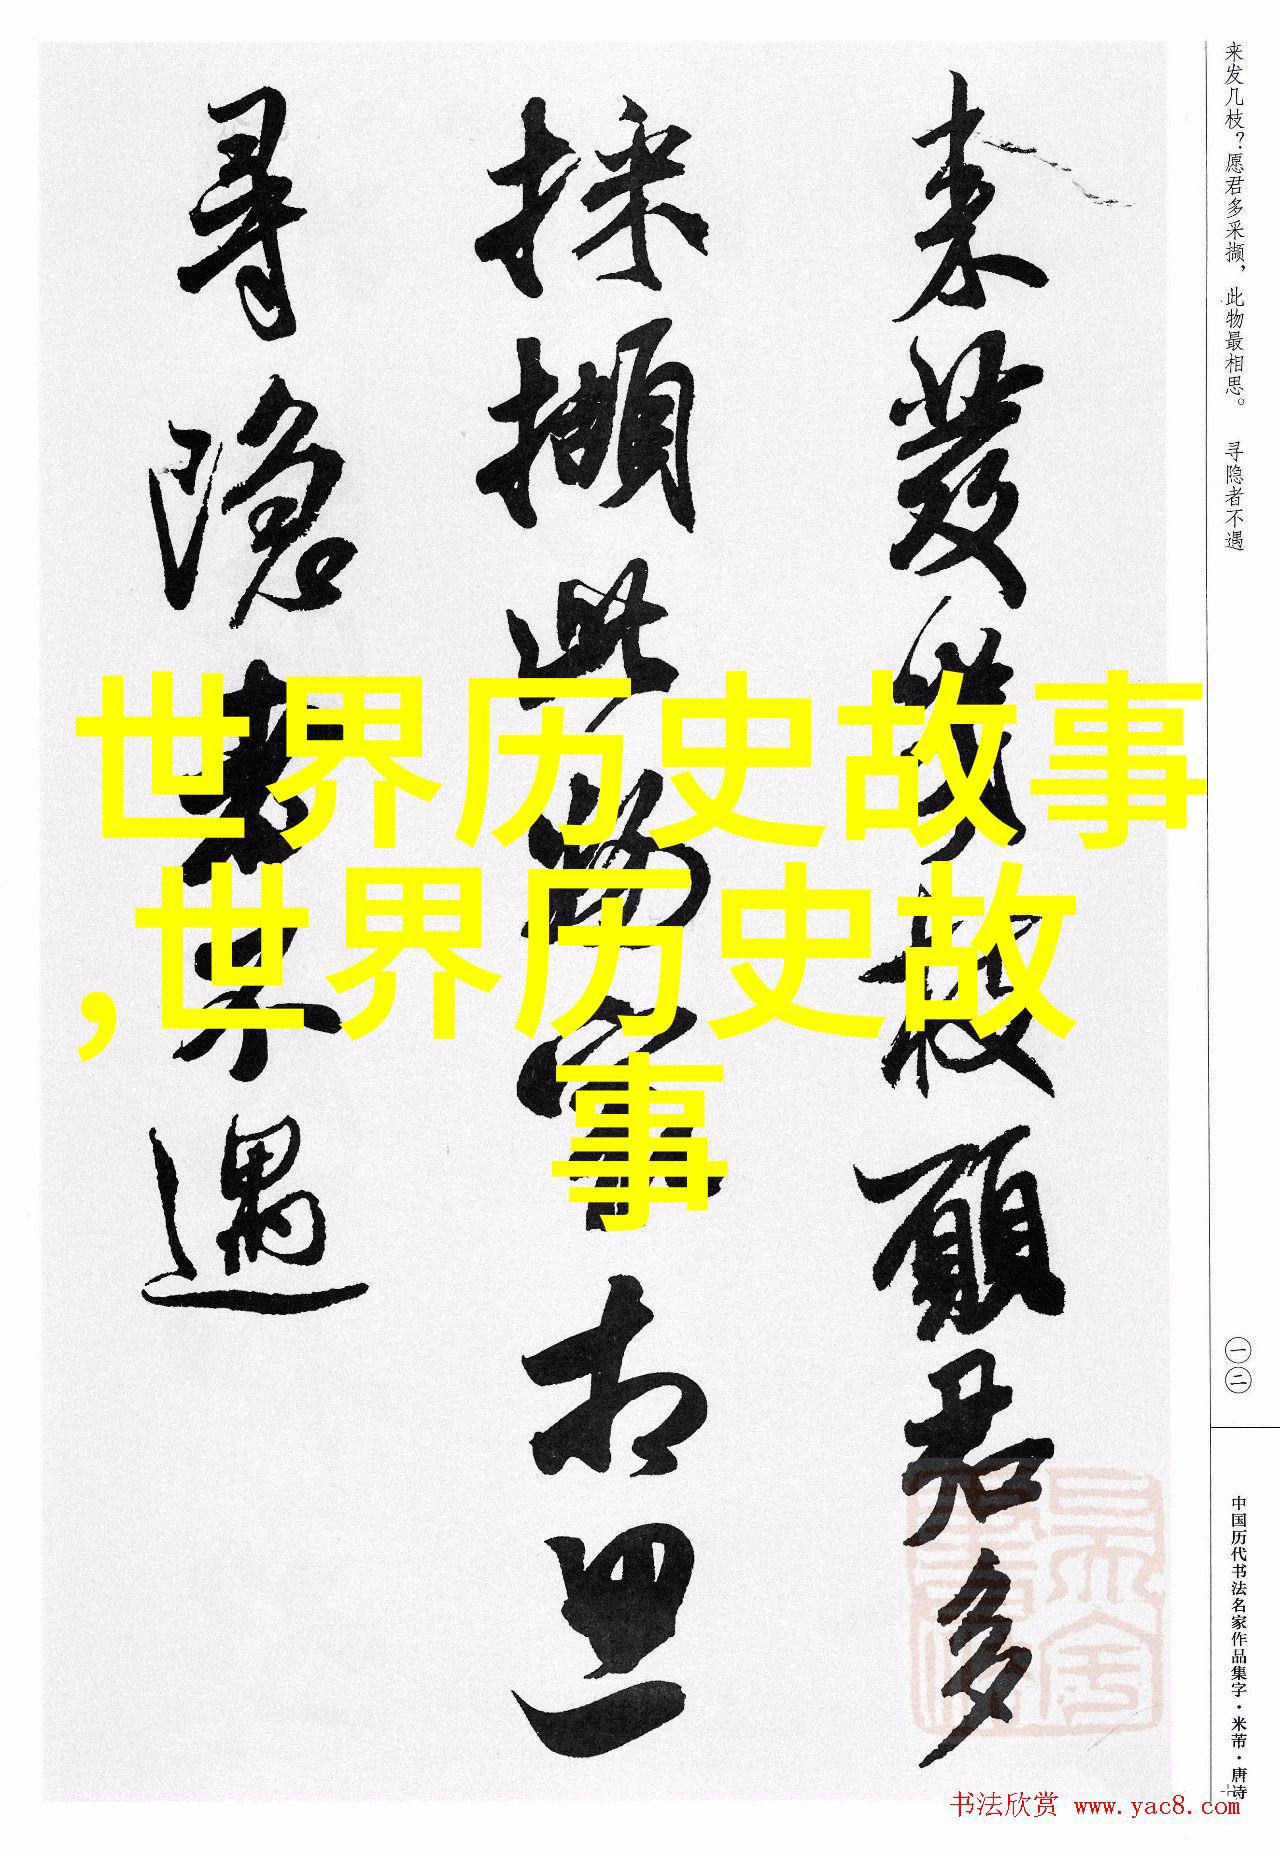 来发几枝？愿君多采撷，此物最相思。 寻隐者不遇
来發幾枝願君多
採擷此物最相思
尋隱者不遇
世界历史故事
,世界历史故
事
一二
中国历代书法名家作品集字·米芾·唐诗
书法欣赏 www.yac8.com